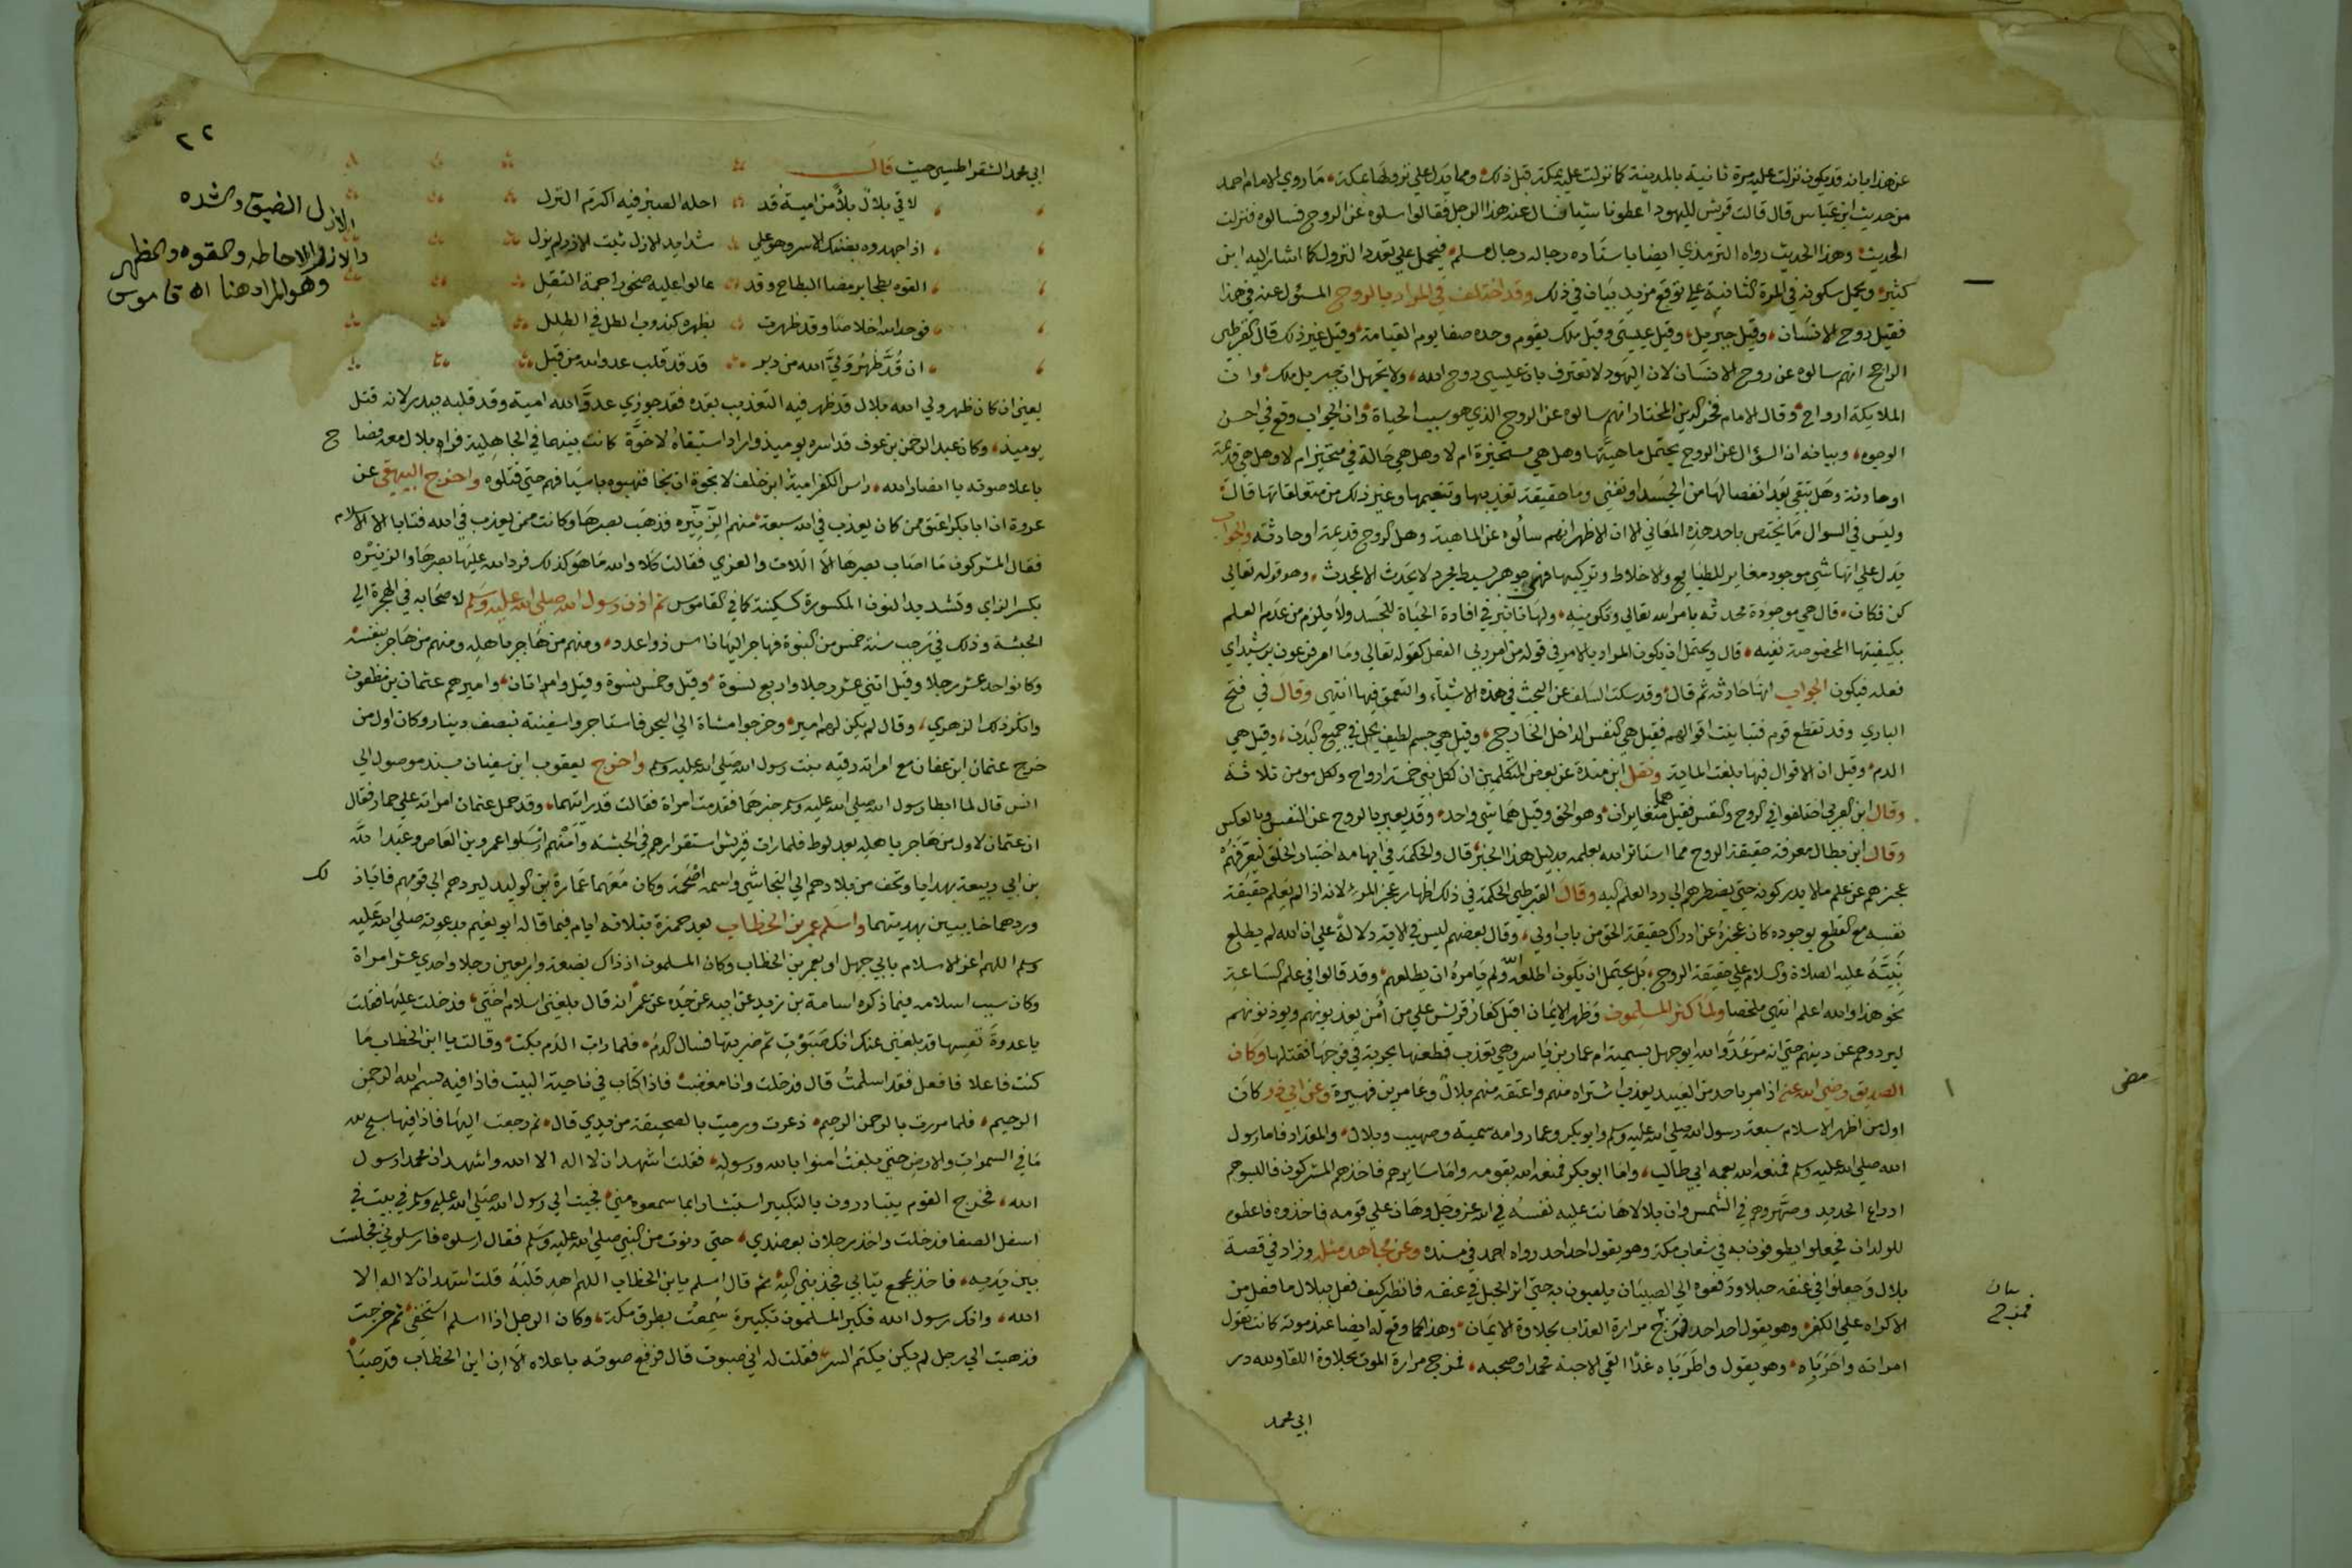 عن هذا بانه قد يكون نزلت عليه مرة ثانية بالمدينة كما نزلت عليه بمكة قبل ذلك ومما يدل على نزولها بمكة ما روي الامام احمد
من حديث ابن عباس قال قالت قريش لليهود اعطونا شيا نسال عنه هذا الرجل فقالوا سلوه عن الروح فسالوه فنزلت
الحديث وهذا الحديث رواه الترمذي ايضا باسناده رجاله رجال مسلم فيحمل على تعدد النزول كما اشار اليه ابن
كثير ويحمل سكوته في المرة الثانية على توقع مزيد بيان في ذلك وقد اختلف في المراد بالروح المسؤل عنه في هذا
فقيل روح الانسان وقيل جبريل وقيل عيسى وقيل ملك يقوم وحده صفا يوم القيامة وقيل غير ذلك قال القرطبي
الراجح انهم سالوه عن روح الانسان لان اليهود لا تعترف بان عيسى روح الله ولا تجهل ان جبريل ملك وان
الملايكة ارواح وقال الامام فخر الدين المختار انهم سالوه عن الروح الذي هو سبب الحياة وان الجواب وقع في احسن
الوجوه وبيانه ان السؤال عن الروح يحتمل ماهيتها وهل هي متحيزة ام لا وهل هي حالة في متحيز ام لا وهل هي قديمة
او حادثة وهل تبقى بعد انفصالها من الجسد او تفنى وما حقيقة تعذيبها وتنعيمها وغير ذلك من متعلقاتها قال
وليس في السوال ما يختص باحد هذه المعاني الا ان الاظهر انهم سألوه عن الماهية وهل الروح قديمة او حادثة والجواب
يدل على انها شي موجود مغاير للطبايع والاخلاط وتركيبها فهي جوهر بسيط مجرد لا يحدث الا بمحدث وهو قوله تعالى
كن فكان قال هي موجودة محدثه بامر الله تعالى وتكوينه ولها تاثير في افادة الحياة للجسد ولا يلزم من عدم العلم
بكيفيتها المخصوصة نفيه قال ويحتمل ان يكون المراد بالامر في قوله من امر ربي الفعل كقوله تعالى وما امر فرعون برشيد اي
فعله فيكون الجواب انها حادثه ثم قال وقد سكت السلف عن البحث في هذه الاشياء والتعمق فيها انتهى وقال في فتح
الباري وقد تنطع قوم فتباينت اقوالهم فقيل هي النفس الداخل الخارج وقيل هي جسم لطيف يحل في جميع البدن وقيل هي
الدم وقيل ان الاقوال فيها بلغت الماية ونقل ابن مندة عن بعض المتكلمين ان لكل نبي خمسة ارواح ولكل مومن ثلاثة
وقال ابن العربي اختلفوا في الروح والنفس فقيل هما متغايران وهو الحق وقيل هما شي واحد وقد يعبر بالروح عن النفس وبالعكس
وقال ابن بطال معرفة حقيقة الروح مما استاثر الله بعلمه بدليل هذا الخبر قال والحكمة في ابهامه اختبار الخلق ليعرفهم
عجزهم عن علم ما لا يدركونه حتى يضطرهم الى رد العلم اليه وقال القرطبي الحكمة في ذلك اظهار عجز المرء لانه اذا لم يعلم حقيقة
نفسه مع القطع بوجوده كان عجزه عن ادراك حقيقة الحق من باب اولى وقال بعضهم ليس في الاية دلالة على ان الله لم يطلع
نبيه عليه الصلاة والسلام على حقيقة الروح بل يحتمل ان يكون اطلعه الله ولم يامره ان يطلعهم وقد قالوا في علم الساعة
نحو هذا والله اعلم انتهى ملخصا ولما كثر المسلمون وظهر الايمان اقبل كفار قريش على من امن يعذبونهم ويوذونهم
ليردوهم عن دينهم حتى انه مر عدو الله ابو جهل بسمية ام عمار بن ياسر وهي تعذب فطعنها بحربة في فرجها فقتلها وكان
الصديق رضي الله عنه اذا مر باحد من العبيد يعذب اشتراه منهم واعتقه منهم بلال وعامر بن فهيرة وعن ابي ذر كان
اول من اظهر الاسلام سبعة رسول الله صلى الله عليه وسلم وابو بكر وعمار وامه سمية وصهيب وبلال والمقداد فاما رسول
الله صلى الله عليه وسلم فمنعه الله بعمه ابي طالب واما ابو بكر فمنعه الله بقومه واما سايرهم فاخذهم المشركون فالبسوهم
ادراع الحديد وصهروهم في الشمس وان بلالا هانت عليه نفسه في الله عز وجل وهان على قومه فاخذوه فاعطوه
للولدان فجعلوا يطوفون به في شعاب مكة وهو يقول احد احد رواه احمد في مسنده وعن مجاهد مثله وزاد في قصة
بلال وجعلوا في عنقه حبلا ودفعوه الى الصبيان يلعبون به حتى اثر الحبل في عنقه فانظر كيف فعل ببلال ما فعل من
الاكراه على الكفر وهو يقول احد احد فمزج مرارة العذاب بحلاوة الايمان وهذا كما وقع له ايضا عند موته كانت تقول
امراته واحرباه وهو يقول واطرباه غدا القى الاحبة محمدا وصحبه فمزج مرارة الموت بحلاوة اللقا ولله در
ابي محمد
مضى
بيان
فمزج
٢٢
ابي محمد الشقراطسي حيث قال
لاقى بلال بلاء من امية قد احله الصبر فيه اكرم النزل
اذ اجهدوه بضنك الاسر وهو على شدايد الازل ثبت الازر لم يزل
القوه بطحا برمضا البطاح وقد عالوا عليه صخورا جمة الثقل
فوحد الله اخلاصا وقد ظهرت بظهره كندوب الطل في الطلل
ان قد ظهر ولي الله من دبر قد قد قلب عدو الله من قبل
يعني ان كان ظهر ولي الله بلال قد ظهر فيه التعذيب بقده فقد جوزي عدو الله امية وقد قلبه ببدر لانه قتل
يوميذ وكان عبد الرحمن بن عوف قد اسره يوميذ واراد استبقاه لاخوة كانت بينهما في الجاهلية فراه بلال معه فصاح
باعلا صوته يا انصار الله راس الكفر امية ابن خلف لا نجوت ان نجا فنهبوه باسيافهم حتى قتلوه واخرج البيهقي عن
عروة ان ابا بكر اعتق ممن كان يعذب في الله سبعة منهم الزنيره فذهب بصرها وكانت ممن يعذب في الله فتابا الا الاسلام
فقال المشركون ما اصاب بصرها الا اللات والعزي فقالت كلا والله ما هو كذلك فرد الله عليها بصرها والزنيره
بكسر الزاي وتشديد النون المكسورة كسكينة كما في القاموس ثم اذن رسول الله صلى الله عليه وسلم لاصحابه في الهجرة الى
الحبشة وذلك في رجب سنة خمس من النبوة فهاجر اليها ناس ذوا عدد ومنهم من هاجر باهله ومنهم من هاجر بنفسه
وكانوا احد عشر رجلا وقيل اثني عشر رجلا واربع نسوة وقيل وخمس نسوة وقيل وامراتان واميرهم عثمان بن مظعون
وانكر ذلك الزهري وقال لم يكن لهم امير وخرجوا مشاة الى البحر فاستاجروا سفينة بنصف دينار وكان اول من
خرج عثمان ابن عفان مع امراته رقيه بنت رسول الله صلى الله عليه وسلم واخرج يعقوب ابن سفيان بسند موصول الى
انس قال لما ابطا رسول الله صلى الله عليه وسلم خبرهما فقدمت امراة فقالت قد رايتهما وقد حمل عثمان امراته على حمار فقال
ان عثمان لاول من هاجر باهله بعد لوط فلما رات قريش استقرارهم في الحبشه وامنهم ارسلوا عمرو بن العاص وعبد الله
بن ابي ربيعة بهدايا وتحف من بلادهم الى النجاشي واسمه اصحمة وكان معهما عمارة بن الوليد ليردهم الى قومهم فابا ذلك
وردهما خايبين بهديتهما واسلم عمر بن الخطاب بعد حمزة بثلاثة ايام فيما قاله ابو نعيم بدعوته صلى الله عليه
وسلم اللهم اعز الاسلام بابي جهل او بعمر بن الخطاب وكان المسلمون اذ ذاك بضعة واربعين رجلا واحدي عشر امراة
وكان سبب اسلامه فيما ذكره اسامة بن زيد عن ابيه عن جده عن عمر انه قال بلغني اسلام اختي فدخلت عليها فقلت
يا عدوة نفسها قد بلغني عنك انك صبوت ثم ضربتها فسال الدم فلما رات الدم بكت وقالت يا ابن الخطاب ما
كنت فاعلا فافعل فقد اسلمت قال فدخلت وانا مغضب فاذا كتاب في ناحية البيت فاذا فيه بسم الله الرحمن
الرحيم فلما مررت بالرحمن الرحيم ذعرت ورميت بالصحيفة من يدي قال ثم رجعت اليها فاذا فيها سبح لله
ما في السموات والارض حتى بلغت امنوا بالله ورسوله فقلت اشهد ان لا اله الا الله واشهد ان محمدا رسول
الله فخرج القوم يتبادرون بالتكبير استبشارا بما سمعوه مني فجيت الى رسول الله صلى الله عليه وسلم في بيت في
اسفل الصفا فدخلت واخذ رجلان بعضدي حتى دنوت من النبي صلى الله عليه وسلم فقال ارسلوه فارسلوني فجلست
بين يديه فاخذ بمجمع ثيابي فجذبني اليه ثم قال اسلم يا بن الخطاب اللهم اهد قلبه قلت اشهد ان لا اله الا
الله وانك رسول الله فكبر المسلمون تكبيرة سمعت بطرق مكة وكان الرجل اذا اسلم استخفى ثم خرجت
فذهبت الى رجل لم يكن يكتم السر فقلت له اني صبوت قال فرفع صوته باعلاه الا ان ابن الخطاب قد صبا
الازل الضيق والشده
والازر الاحاطه والقوه والظهر
وهو المراد هنا اه قاموس